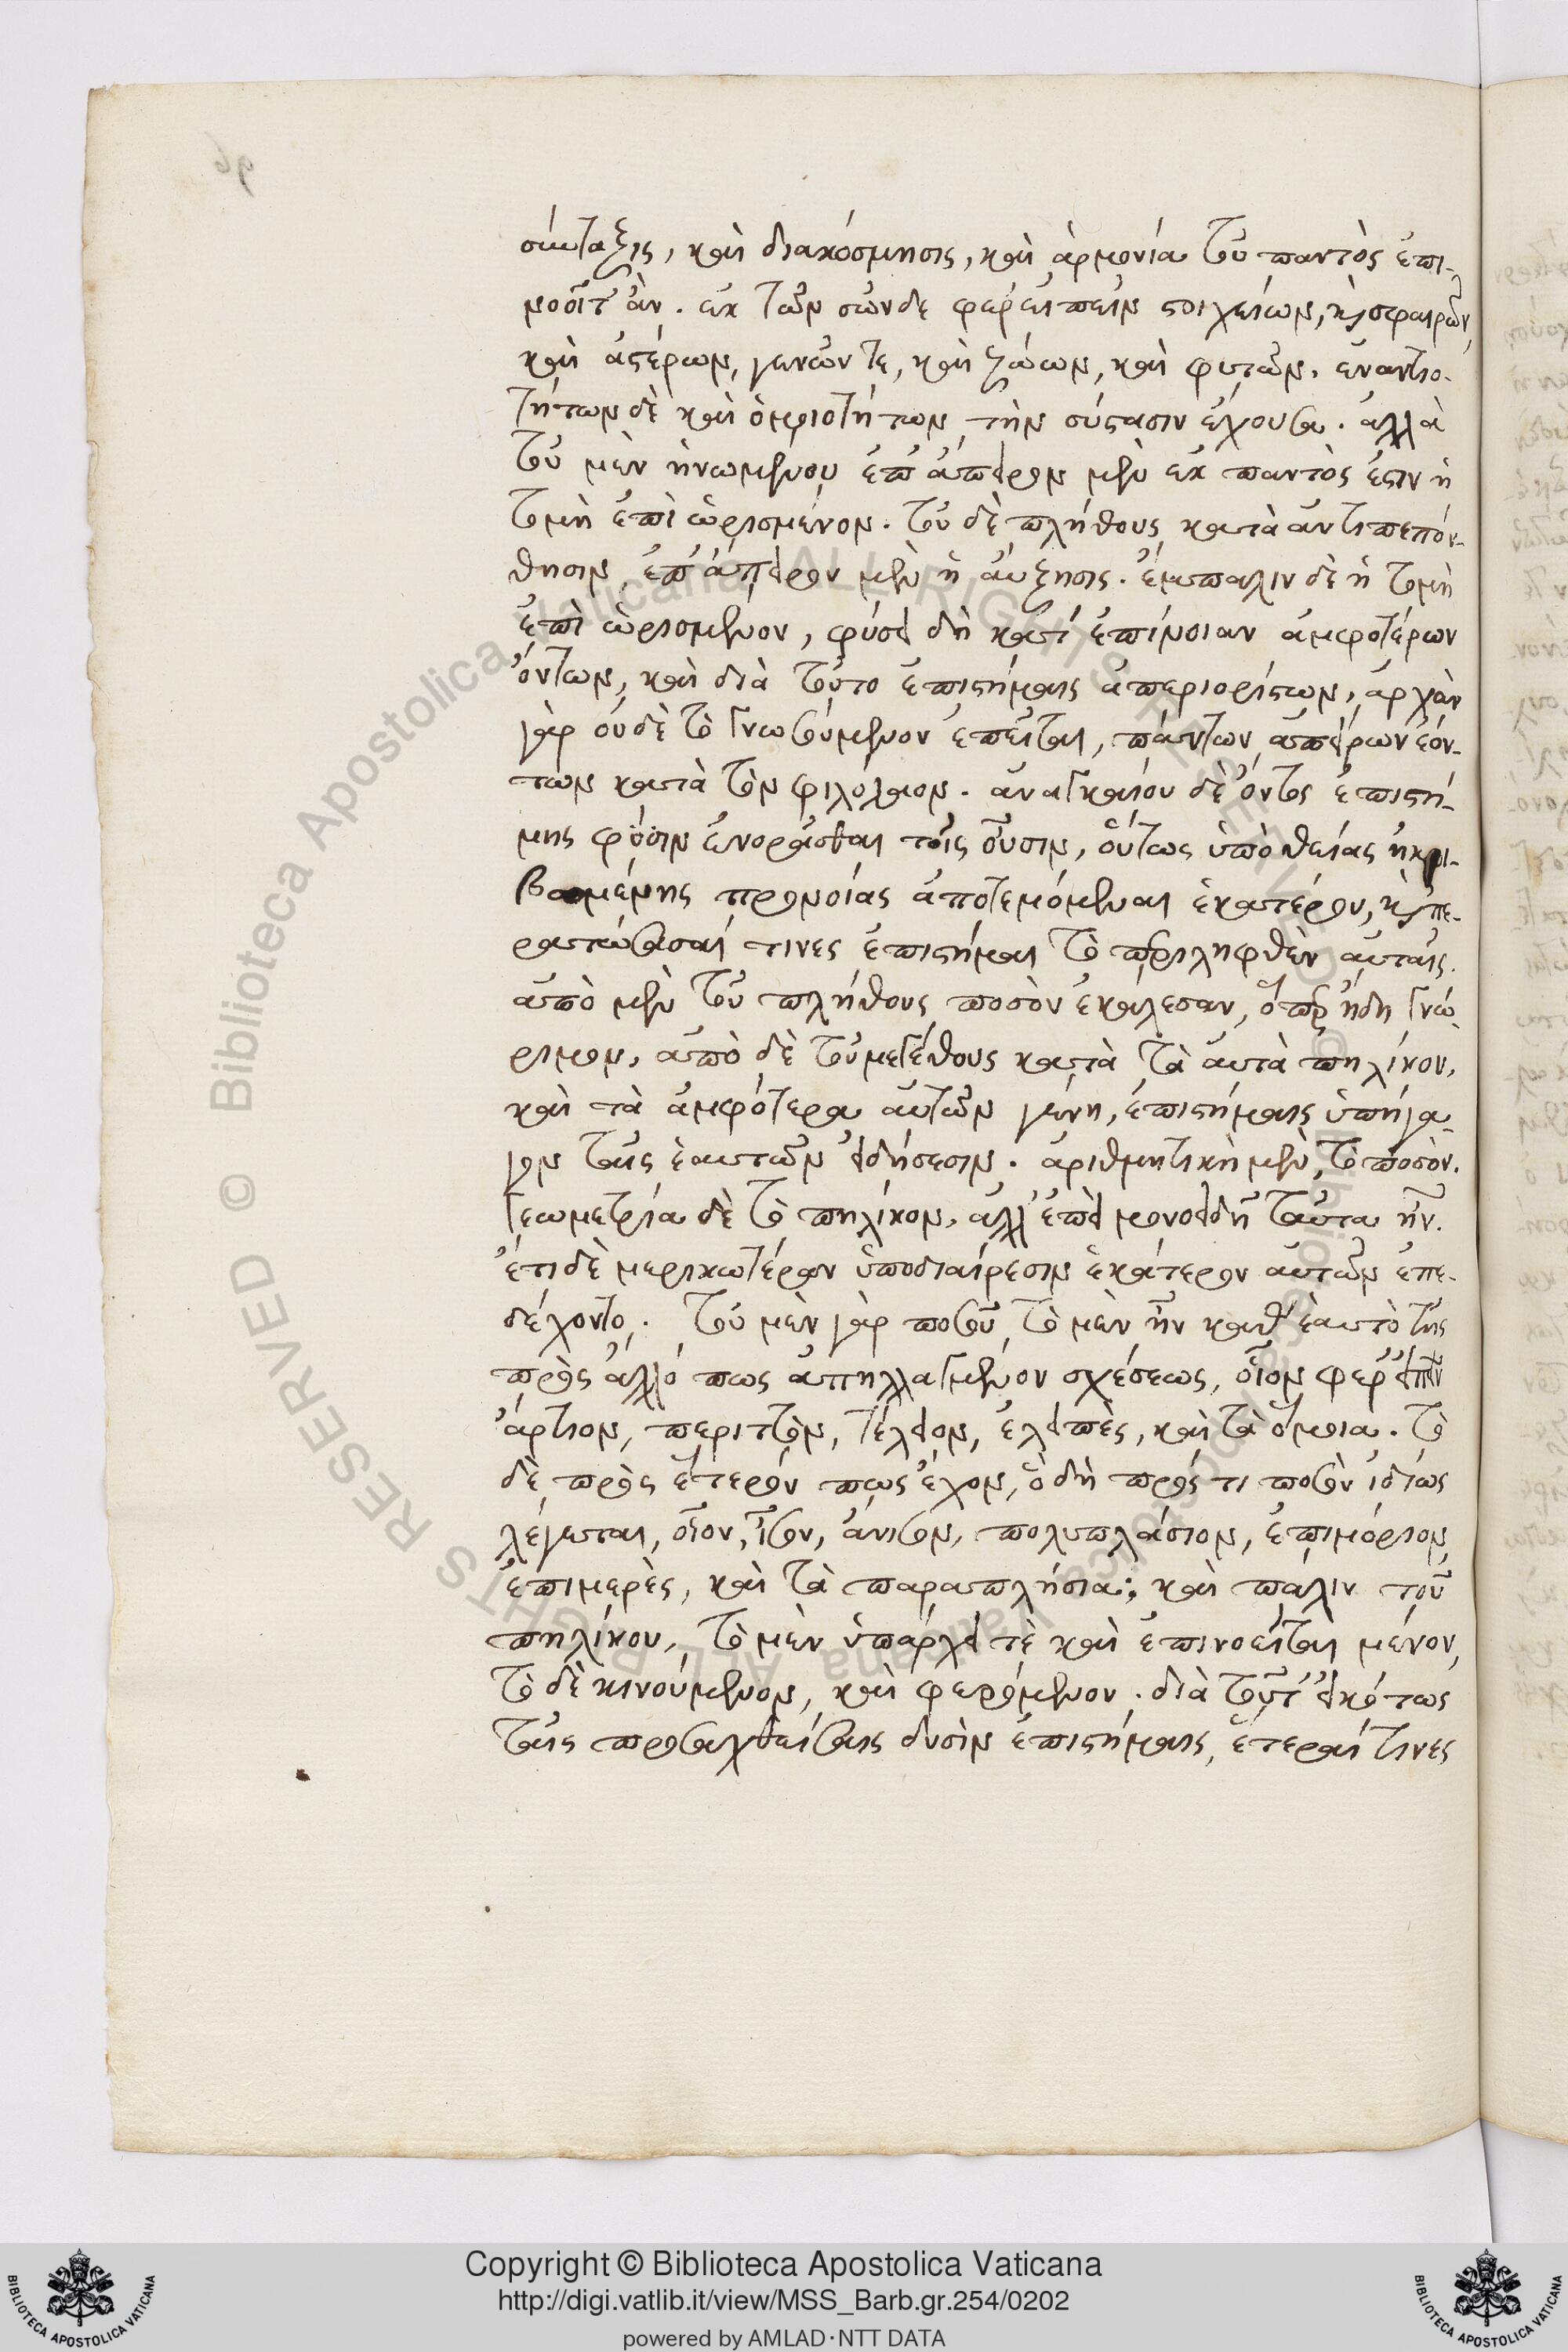 σύνταξις, καὶ διακόσμησις, καὶ ἁρμονία τοῦ παντὸς ἐπι-
νοοῖτ' ἄν. ἐκ τῶν σῶνδε φέρ' εἰπεῖν στοιχείων, καὶ σφαιρῶν,
καὶ ἀστέρων, γενῶν τε, καὶ ζώων, καὶ φυτῶν. ἐναντιο-
τήτων δὲ καὶ ὁμοιοτήτων τὴν σύστασιν ἔχουσα. ἀλλὰ
τοῦ μὲν ἡνωμένου ἐπ' ἄπειρον μὲν ἐκ παντὸς ἐστιν ἡ
τομὴ ἐπὶ ὡρισμένον. τοῦ δὲ πλήθους κατὰ ἀντιπεπόν-
θησιν ἐπ' ἄπειρον μὲν ἡ αὔξησις. ἔμπαλιν δὲ ἡ τομὴ
ἐπὶ ὡρισμένον, φύσει δὴ κατ' ἐπίνοιαν ἀμφοτέρων
ὄντων, καὶ διὰ τοῦτο ἐπιστήμαις ἀπεριορίστων, ἀρχὰν
γὰρ οὐδὲ τὸ γνωσούμενον ἐπεῖται, πάντων ἀπείρων ἐόν-
των κατὰ τὸν φιλόλαον. ἀναγκαίου δὲ ὄντος ἐπιστή-
μης φύσιν ἐνορᾶσθαι τοῖς οὖσιν, οὕτως ὑπὸ θείας ἠκρι-
βωμένης προνοίας ἀποτεμόμεναι ἑκατέρου, καὶ πε-
ρατώσασαί τινες ἐπιστῆμαι τὸ περιληφθὲν αὐταῖς.
ἀπὸ μὲν τοῦ πλήθους ποσὸν ἐκάλεσαν, ὅπερ ἤδη γνώ-
ριμον, ἀπὸ δὲ τοῦ μεγέθους κατὰ τὰ αὐτὰ πηλίκον,
καὶ τὰ ἀμφότερα αὐτῶν γένη, ἐπιστήμαις ὑπήγα-
γον ταῖς ἑαυτῶν εἰδήσεσιν. ἀριθμητικῇ μὲν, τὸ ποσὸν.
γεωμετρία δὲ τὸ πηλίκον, ἀλλ' ἐπεὶ μονοειδῆ ταῦτα ἦν.
ἔτι δὲ μερικωτέραν ὑποδιαίρεσιν ἑκάτερον αὐτῶν ἐπε-
δέχοντο. τοῦ μὲν γὰρ ποσοῦ τὸ μὲν ἦν καθ' ἑαυτὸ τῆς
πρὸς ἄλλό πως ἀπηλλαγμένον σχέσεως, οἷον φέρ' εἰπεῖν
ἄρτιον, περιττὸν, τέλειον, ἐλειπὲς, καὶ τὰ ὅμοια. τὸ
δὲ πρὸς ἕτερόν πως ἔχον, ὃ δὴ πρός τι ποσὸν ἰδίως
λέγεται, οἷον, ἴσον, ἄνισον, πολυπλάσιον, ἐπιμόριον,
ἐπιμερὲς, καὶ τὰ παραπλήσια; καὶ πάλιν τοῦ
πηλίκου, τὸ μὲν ὑπάρχει τὲ καὶ ἐπινοεῖται μένον,
τὸ δὲ κινούμενον, καὶ φερόμενον. διὰ τοῦτ' εἰκότως
ταῖς προταχθείσαις δυσὶν ἐπιστήμαις, ἕτεραί τινες
Copyright © Biblioteca Apostolica Vaticana
http://digi.vatlib.it/view/MSS_Barb.gr.254/0202
powered by AMLAD·NTT DATA